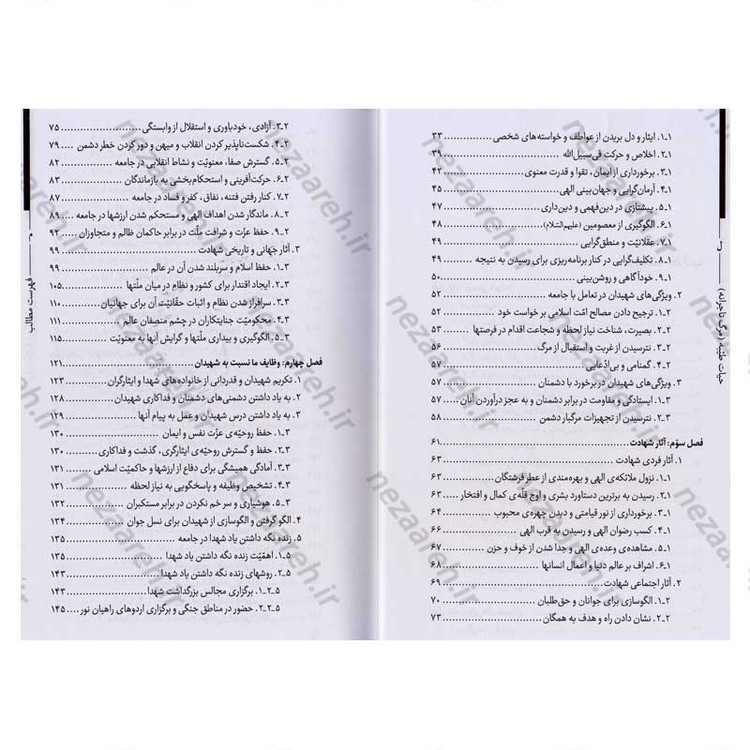 حیات طیّبه (مرگ تاجرانه)
۱ـ۱. ایثار و دل بریدن از عواطف و خواسته‌های شخصی ۳۳
۲ـ۱. اخلاص و حرکت فی‌سبیل‌الله ۳۹
۳ـ۱. برخورداری از ایمان، تقوا و قدرت معنوی ۴۲
۴ـ۱. آرمان‌گرایی و جهان‌بینی الهی ۴۵
۵ـ۱. پیشتازی در دین‌فهمی و دین‌داری ۴۷
۶ـ۱. الگوگیری از معصومین (علیهم‌السّلام) ۴۸
۷ـ۱. عقلانیّت و منطق‌گرایی ۴۹
۸ـ۱. تکلیف‌گرایی در کنار برنامه‌ریزی برای رسیدن به نتیجه ۴۹
۹ـ۱. خودآگاهی و روشن‌بینی ۵۰
۲. ویژگی‌های شهیدان در تعامل با جامعه ۵۲
۱ـ۲. ترجیح دادن مصالح امّت اسلامی بر خواست خود ۵۲
۲ـ۲. بصیرت، شناخت نیاز لحظه و شجاعت اقدام در فرصتها ۵۳
۳ـ۲. نترسیدن از غربت و استقبال از مرگ ۵۶
۴ـ۲. گمنامی و بی‌ادّعایی ۵۷
۳. ویژگی‌های شهیدان در برخورد با دشمنان ۵۷
۱ـ۳. ایستادگی و مقاومت در برابر دشمنان و به عجز درآوردن آنان ۵۷
۲ـ۳. نترسیدن از تجهیزات مرگبار دشمن ۵۸
فصل سوّم: آثار شهادت ۶۱
۱. آثار فردی شهادت ۶۳
۱ـ۱. نزول ملائکه‌ی الهی و بهره‌مندی از عطر فرشتگان ۶۳
۲ـ۱. رسیدن به برترین دستاورد بشری و اوج قلّه‌ی کمال و افتخار ۶۳
۳ـ۱. برخورداری از نور قیامتی و دیدن چهره‌ی محبوب ۶۴
۴ـ۱. کسب رضوان الهی و رسیدن به قرب الهی ۶۶
۵ـ۱. مشاهده‌ی وعده‌ی الهی و جدا شدن از خوف و حزن ۶۷
۶ـ۱. اشراف بر عالم دنیا و اعمال انسانها ۶۸
۲. آثار اجتماعی شهادت ۶۹
۱ـ۲. الگوسازی برای جوانان و حق‌طلبان ۷۰
۲ـ۲. نشان دادن راه و هدف به همگان ۷۳
فهرست مطالب
۳ـ۲. آزادی، خودباوری و استقلال از وابستگی ۷۵
۴ـ۲. شکست‌ناپذیر کردن انقلاب و میهن و دور کردن خطر دشمن ۷۹
۵ـ۲. گسترش صفا، معنویّت و نشاط انقلابی در جامعه ۸۲
۶ـ۲. حرکت‌آفرینی و استحکام‌بخشی به بازماندگان ۸۳
۷ـ۲. کنار رفتن فتنه، نفاق، کفر و فساد در جامعه ۸۷
۸ـ۲. ماندگار شدن اهداف الهی و مستحکم شدن ارزشها در جامعه ۸۹
۹ـ۲. حفظ عزّت و شرافت ملّت در برابر حاکمان ظالم و متجاوزان ۹۲
۳. آثار جهانی و تاریخی شهادت ۹۹
۱ـ۳. حفظ اسلام و سربلند شدن آن در عالم ۹۹
۲ـ۳. ایجاد اقتدار برای کشور و نظام در میان ملّتها ۱۰۵
۳ـ۳. سرافراز شدن نظام و اثبات حقّانیّت آن برای جهانیان ۱۱۰
۴ـ۳. محکومیّت جنایتکاران در چشم منصفان عالم ۱۱۱
۵ـ۳. الگوگیری و بیداری ملّتها و گرایش آنها به معنویّت ۱۱۵
فصل چهارم: وظایف ما نسبت به شهیدان ۱۲۱
۱. تکریم شهیدان و قدردانی از خانواده‌های شهدا و ایثارگران ۱۲۳
۲. به یاد داشتن دشمنی‌های دشمنان و فداکاری شهیدان ۱۲۸
۳. به یاد داشتن درس شهیدان و عمل به پیام آنها ۱۲۹
۱ـ۳. حفظ روحیّه‌ی عزّت نفس و ایمان ۱۳۰
۲ـ۳. حفظ و گسترش روحیّه‌ی ایثارگری، گذشت و فداکاری ۱۳۰
۳ـ۳. آمادگی همیشگی برای دفاع از ارزشها و حاکمیّت اسلامی ۱۳۱
۴ـ۳. تشخیص وظیفه و پاسخگویی به نیاز لحظه ۱۳۱
۵ـ۳. هوشیاری و سر خم نکردن در برابر مستکبران ۱۳۲
۴. الگو گرفتن و الگوسازی از شهیدان برای نسل جوان ۱۳۴
۵. زنده نگه داشتن یاد شهدا در جامعه ۱۳۵
۱ـ۵. اهمّیّت زنده نگه داشتن یاد شهدا ۱۳۵
۲ـ۵. روشهای زنده نگه داشتن یاد شهدا ۱۴۳
۱ـ۲ـ۵. برگزاری مجالس بزرگداشت شهدا ۱۴۳
۲ـ۲ـ۵. حضور در مناطق جنگی و برگزاری اردوهای راهیان نور ۱۴۵
nezaareh.ir